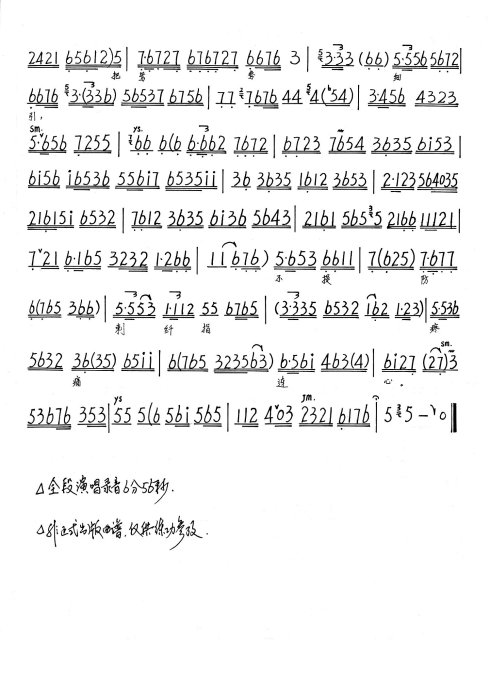 2421 65612)5 | 76727 676727 6676 3 | 3·33 (66) 5·556 5672 |
把 莺 莺 细
6676 3·(336) 56537 6756 | 77 7676 44 4(54) | 3·456 4323
引，
sm. ys.
5·656 7255 | 66 6(6 6·662 7672 | 6723 7654 3635 6i53 |
6i56 i6536 556i7 6535ii | 36 3635 1612 3653 | 2·123564035
21615i 6532 | 7612 3635 6i36 5643 | 2161 5655 2166 11121 |
721 6·165 3232 1·266 | 11 676) 5·653 6611 | 7(625) 7·677
不 提 防
6(765 366) | 5·553 1·112 55 6765 | (3·335 6532 162 1·23) | 5·536
刺 纤 指 疼
sm.
5632 36(35) 65ii | 6(765 323563) 6·56i 463(4) | 6i27 (27)3
痛 连 心。
ys sm.
53676 353 | 55 5(6 56i 565 | 112 403 2321 6176 i | 5 5 – 0
△全段演唱录音6分56秒.
△非正式出版曲谱.仅供练功参考.